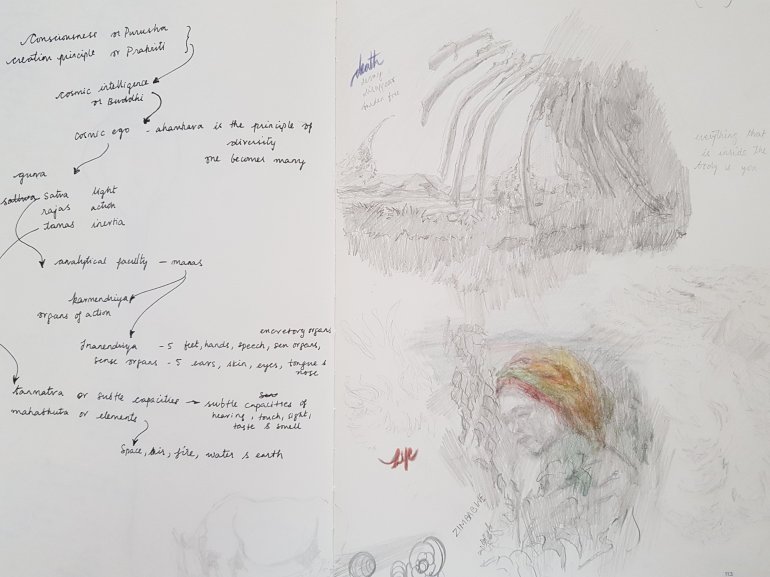 Consciousness or Purusha
creation principle or Prakriti
cosmic intelligence
or Buddhi
cosmic ego - ahankara is the principle of
diversity
one becomes many
guna
satva light
rajas action
tamas inertia
analytical faculty - manas
karmendriya
organs of action
excretory organs
Jnanendriya - 5 feet, hands, speech, sen organs,
sense organs - 5 ears, skin, eyes, tongue &
nose
tanmatra or subtle capacities - subtle capacities of
mahabhuta or elements
hearing, touch, sight,
taste & smell
Space, air, fire, water & earth
death
decay
disappear
under fire
everything that
is inside the
body is you
life
ZIMBABWE